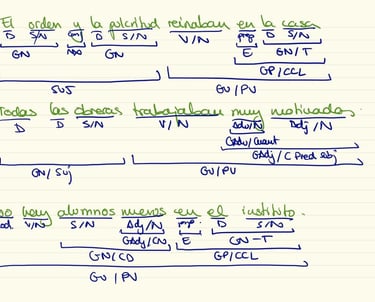 El orden y la pulcritud reinaban en la casa
D S/N conj D S/N V/N prep D S/N
GN Nexo GN E GN/T
GP/CCL
SUJ GV/PV
Todas las obreras trabajaban muy motivadas.
D D S/N V/N Adv/N Adj/N
GAdv/Cuant
GAdj/C Pred Subj
GN/Suj GV/PV
hay alumnos nuevos en el instituto.
V/N S/N Adj/N prep. D S/N
GAdj/CN E GN-T
GN/CD GP/CCL
GV/PV